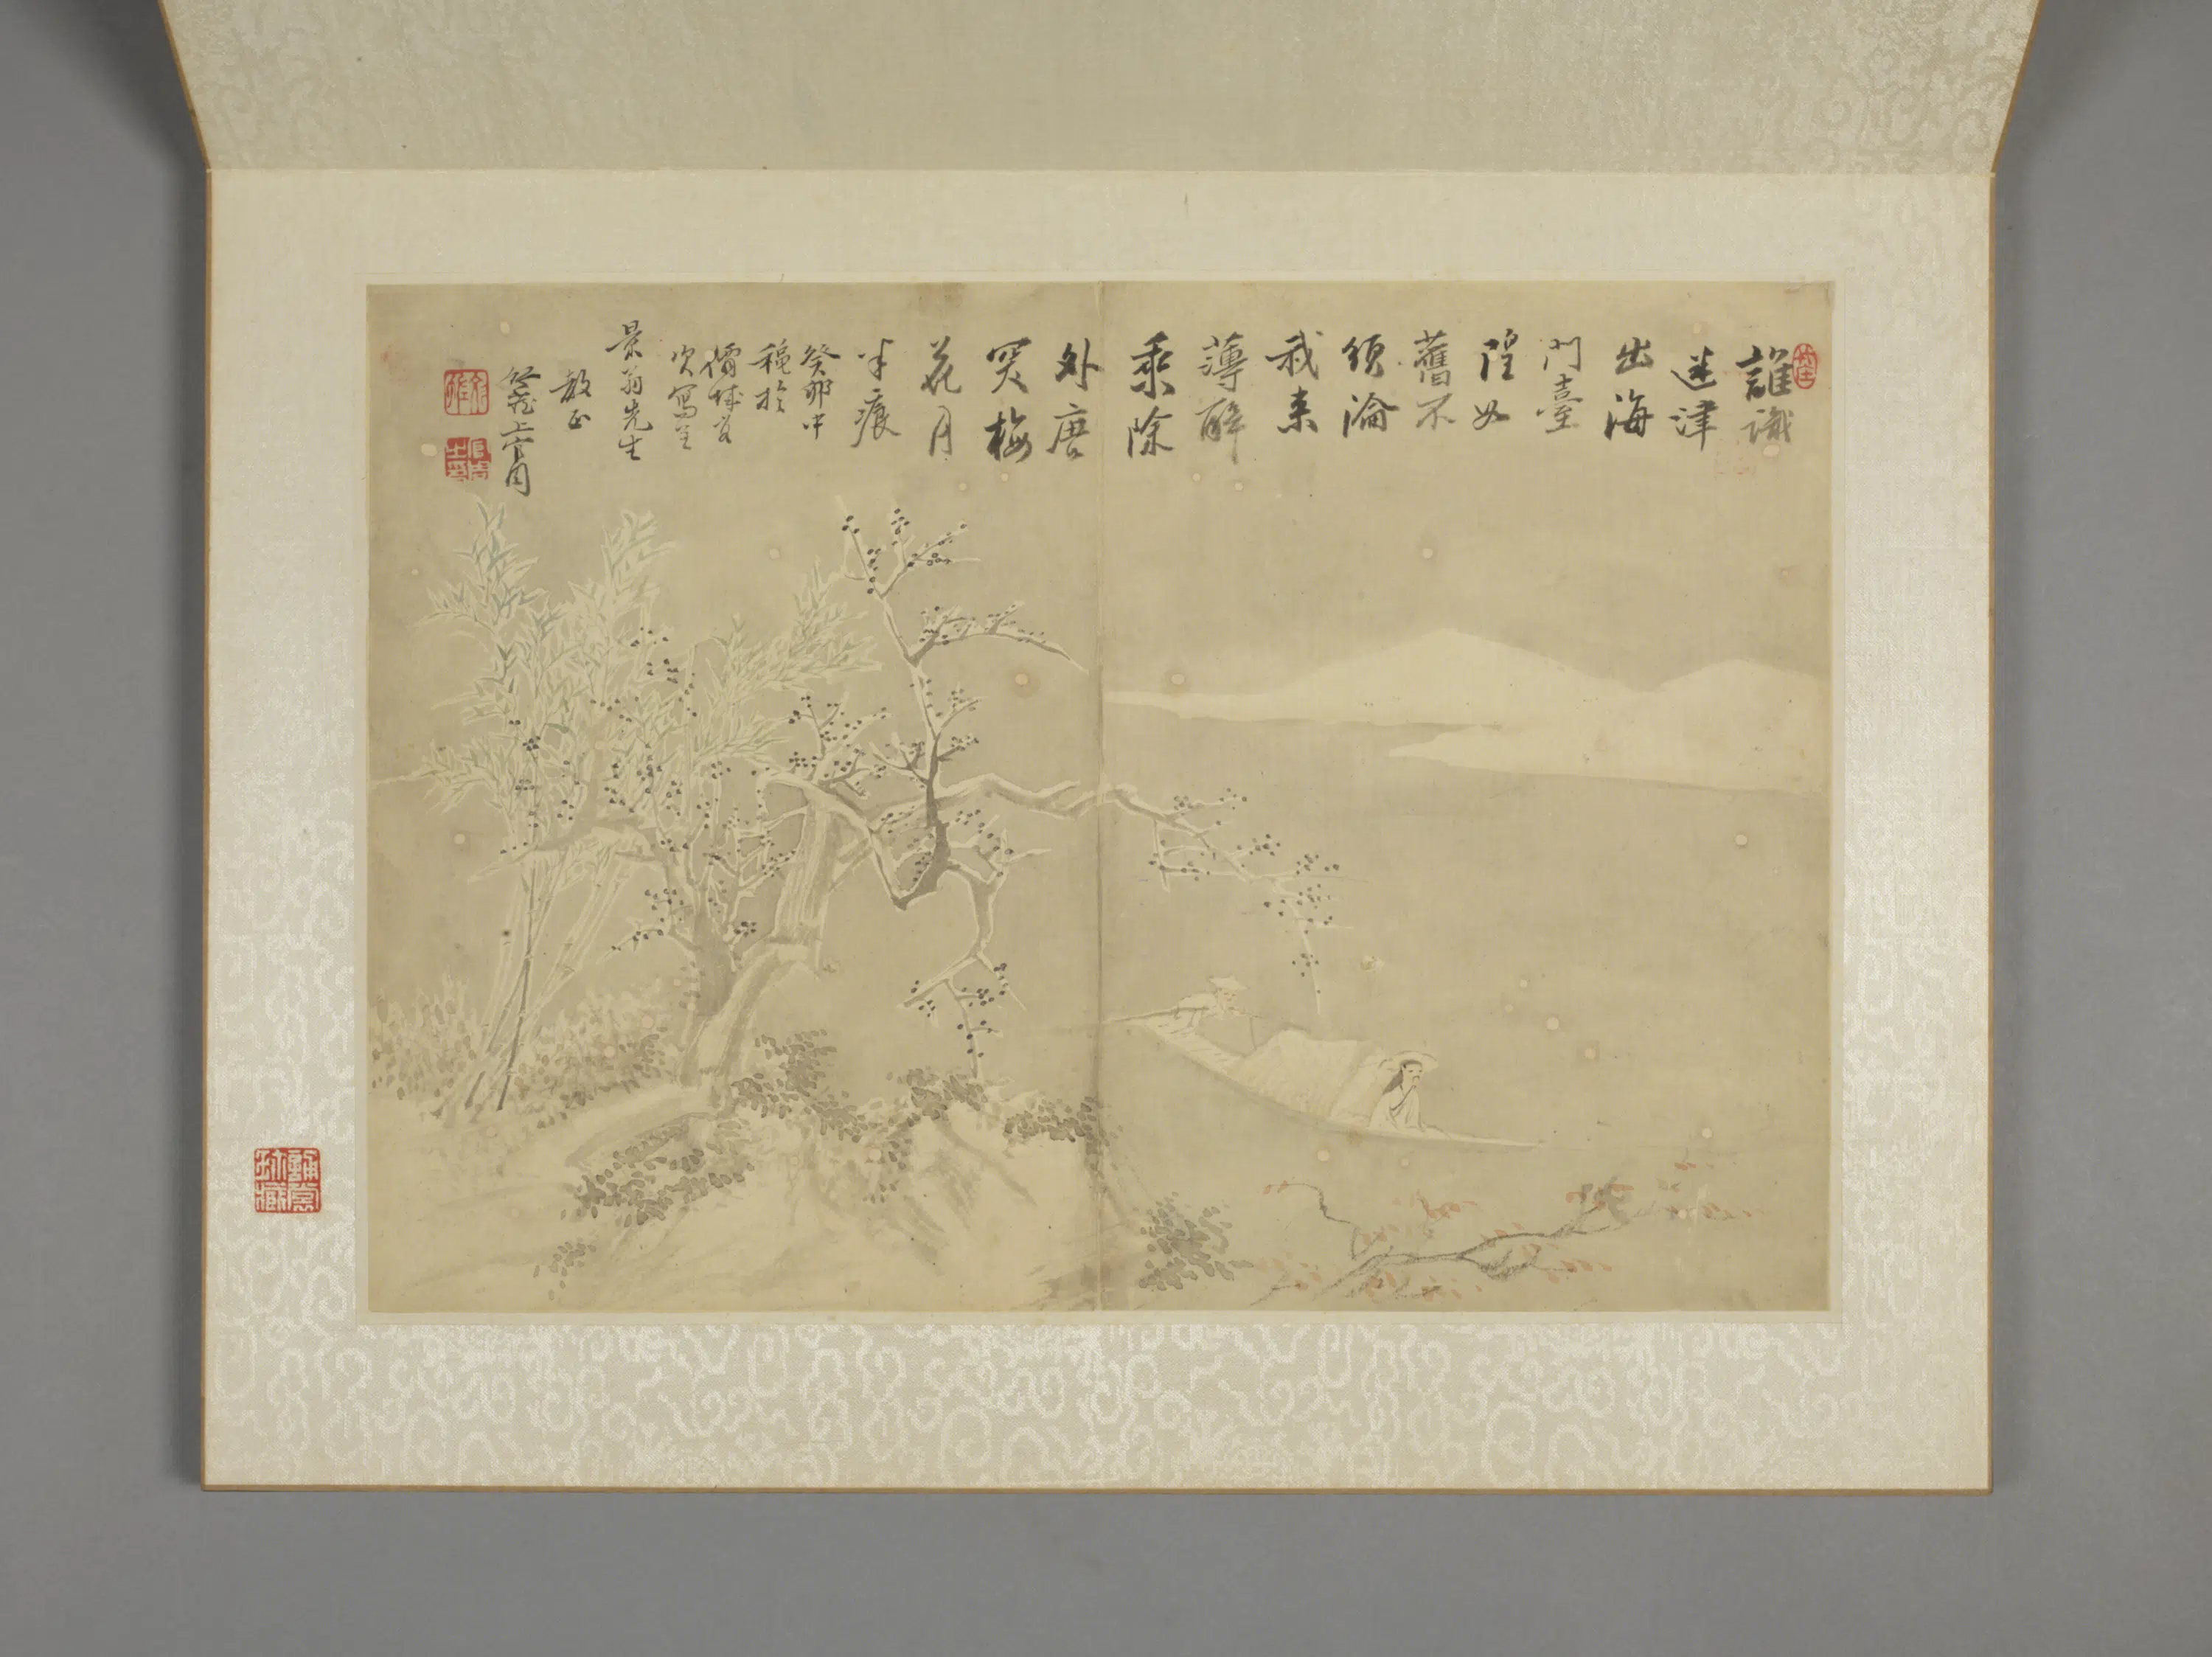 誰識
迷津
出海
門臺
隍如
舊不
須淪
我來
薄醉
乘除
外唐
突梅
花月
半痕
癸卯中
穐於
次寫呈
景翁先生
教正
上官周